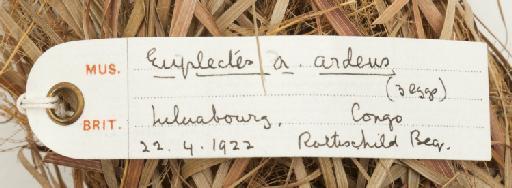 MUS. Euplectes a. ardens
(3 eggs)
BRIT. Luluabourg. Congo
22. 4. 1922 Rothschild Beq.